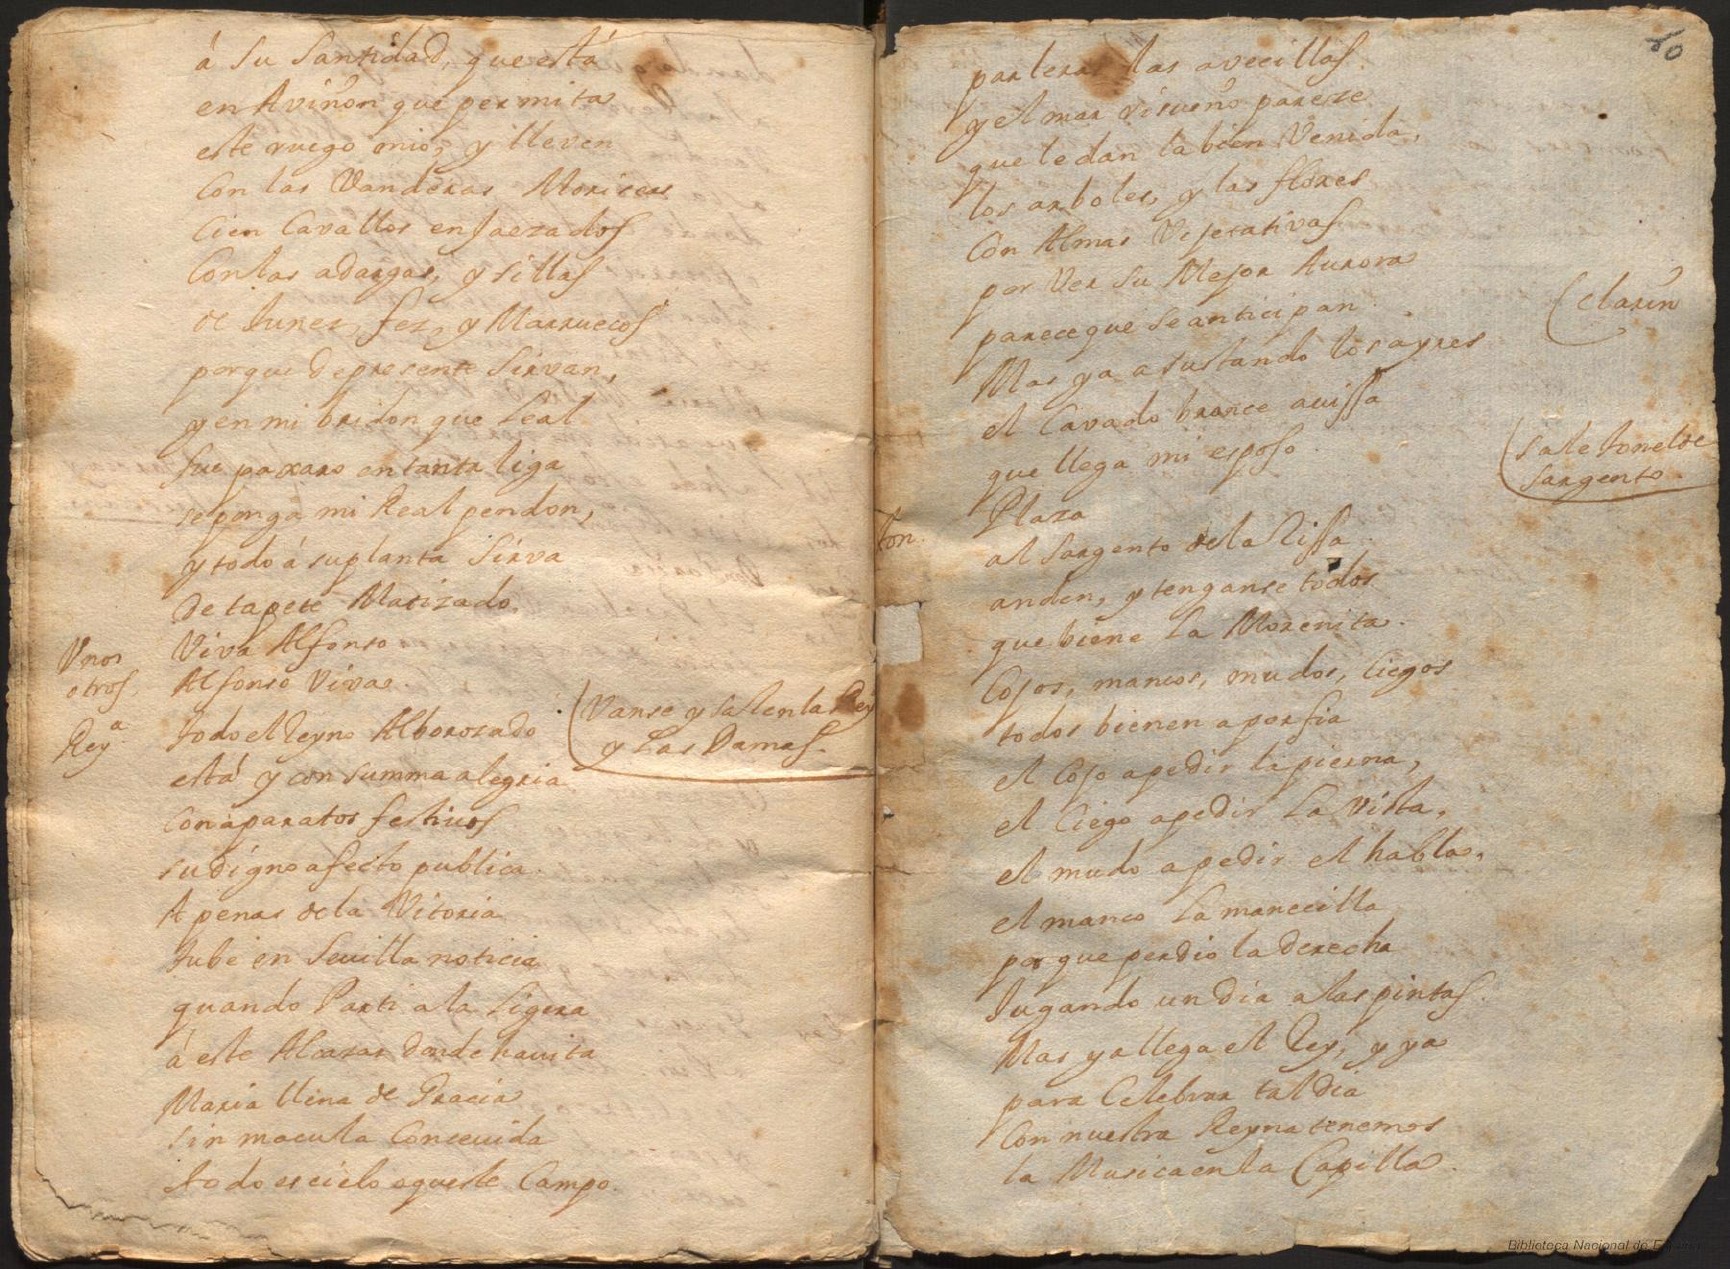 á su santidad, que está
en Aviñon que permita
este ruego mio, y lleven
Con las Vanderas Moriscas
Cien Cavallos enjaezados
Con las adargas, y sillas
de Tunez, fez, y Marruecos
porque de presente Sirvan,
y en mi bridon que Leal
fue paxaro en tanta liga
se ponga mi Real pendon,
y todo á su planta Sirva
De tapete Matizado.
Unos Viva Alfonso
otros Alfonso Viva.
Vanse y salen la Rey
y Las Damas.
Reyª Todo el Reyno Alborozado
está y con summa alegria
Con aparatos festivos
su digno afecto publica.
Apenas de la Vitoria
Tube en Sevilla noticia
quando Parti a la Ligera
á este Alcazar donde havita
Maria llena de Gracia
sin macula Concevida
todo es cielo aqueste Campo.
10
parleras las avecillas
y el mar risueño pareze
que le dan la bien Venida,
los arboles, y las flores
Con Almas Vejetativas
por Ver su Mejor Aurora
parece que se anticipan
Clarin
Mas ya asustando los ayres
el Cavado bronce avissa
que llega mi esposo.
Sale Tonel de
Sargento.
Ton. Plaza
al Sargento de la Rissa
anden, y tenganse todos
que biene La Morenita.
Cojos, mancos, mudos, Ciegos
todos bienen a porfia
el Cojo a pedir la pierna,
el Ciego a pedir La Vista,
el mudo a pedir el habla,
el manco La manecilla
porque perdio la derecha
Jugando un dia a las pintas.
Mas ya llega el Rey, y ya
para Celebrar tal dia
Con nuestra Reyna tenemos
la Musica en la Capilla.
Biblioteca Nacional de España